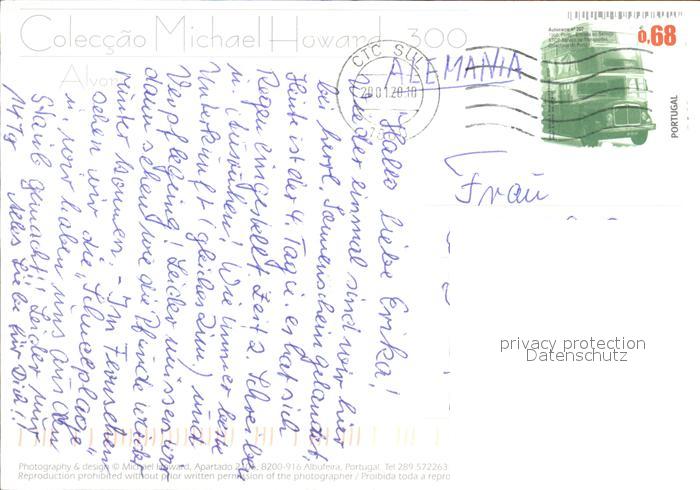 Colecção Michael Howard 300
Alvor
CTC SUL
20.01.20 10
ALEMANIA
0,68
PORTUGAL
Hallo liebe Erika!
Wieder einmal sind wir hier
bei herrl. Sonnenschein gelandet,
Heute ist der 4. Tag u. es hat sich
Regen eingestellt. Zeit z. Schreiben
u. Ausruhen! Wie immer beste
Unterkunft (gleiches Zim) und
Verpflegung! Leider müssen wir
dann schon wie die Pferde wieder
runter kommen. - Im Fernsehen
sehen wir die "Schneeplage"
u. wir haben uns aus dem
Staub gemacht! Leider nur
14 Tg Alles Liebe für Dich!!
Frau
privacy protection
Datenschutz
Photography & design © Michael Howard, Apartado 8200-916 Albufeira, Portugal. Tel 289 572263
Reproduction prohibited without prior written permission of the photographer / Proibida toda a repro